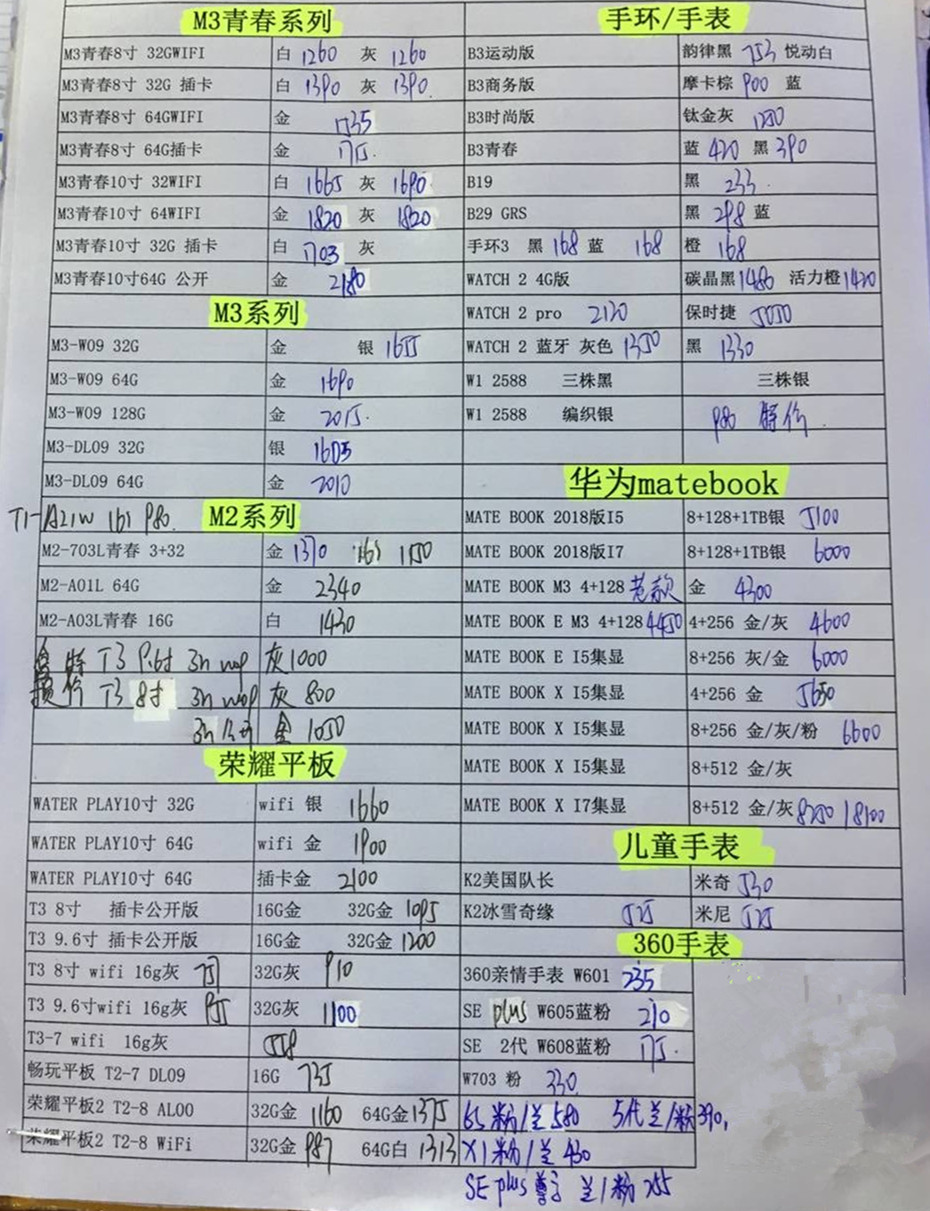 M3青春系列
M3青春8寸 32GWIFI 白 1260 灰 1260
M3青春8寸 32G 插卡 白 1390 灰 1390
M3青春8寸 64GWIFI 金 1735
M3青春8寸 64G插卡 金
M3青春10寸 32WIFI 白 1665 灰 1690
M3青春10寸 64WIFI 金 1820 灰 1820
M3青春10寸 32G 插卡 白 1703 灰
M3青春10寸64G 公开 金 2180
M3系列
M3-W09 32G 金 银 1655
M3-W09 64G 金 1690
M3-W09 128G 金 2015.
M3-DL09 32G 银 1605
M3-DL09 64G 金 2010
T1-A21W 16G 980.
M2系列
M2-703L青春 3+32 金 1370 16G 1150
M2-A01L 64G 金 2340
M2-A03L青春 16G 白 1430
特 T3 9.6寸 灰 1000
损 价 T3 8寸 灰 800
金 1050
荣耀平板
WATER PLAY10寸 32G wifi 银 1660
WATER PLAY10寸 64G wifi 金 1900
WATER PLAY10寸 64G 插卡金 2100
T3 8寸 插卡公开版 16G金 32G金 1095
T3 9.6寸 插卡公开版 16G金 32G金 1200
T3 8寸 wifi 16g灰 32G灰 910
T3 9.6寸wifi 16g灰 32G灰 1100
T3-7 wifi 16g灰 558
畅玩平板 T2-7 DL09 16G 735
荣耀平板2 T2-8 AL00 32G金 1160 64G金 1375
荣耀平板2 T2-8 WiFi 32G金 987 64G白 1313
手环/手表
B3运动版 韵律黑 753 悦动白
B3商务版 摩卡棕 900 蓝
B3时尚版 钛金灰 1200
B3青春 蓝 420 黑 390
B19 黑 233.
B29 GRS 黑 298 蓝
手环3 黑 168 蓝 168 橙 168
WATCH 2 4G版 碳晶黑 1480 活力橙 1420
WATCH 2 pro 2120 保时捷 5050
WATCH 2 蓝牙 灰色 1350 黑 1330
W1 2588 三株黑 三株银
W1 2588 编织银 980 特价
华为matebook
MATE BOOK 2018版I5 8+128+1TB银 5100
MATE BOOK 2018版I7 8+128+1TB银 6000
MATE BOOK M3 4+128 老款 金 4300
MATE BOOK E M3 4+128 4450 4+256 金/灰 4600
MATE BOOK E I5集显 8+256 灰/金 6000
MATE BOOK X I5集显 4+256 金 5650
MATE BOOK X I5集显 8+256 金/灰/粉 6600
MATE BOOK X I5集显 8+512 金/灰
MATE BOOK X I7集显 8+512 金/灰 8200 / 8100
儿童手表
K2美国队长 米奇 530
K2冰雪奇缘 525 米尼 525
360手表
360亲情手表 W601 235
SE plus W605蓝粉 210
SE 2代 W608蓝粉 175.
W703 粉 330
6S 粉/兰 580 5代 兰/粉 390,
X1 粉/兰 430
SE plus 兰/粉 255